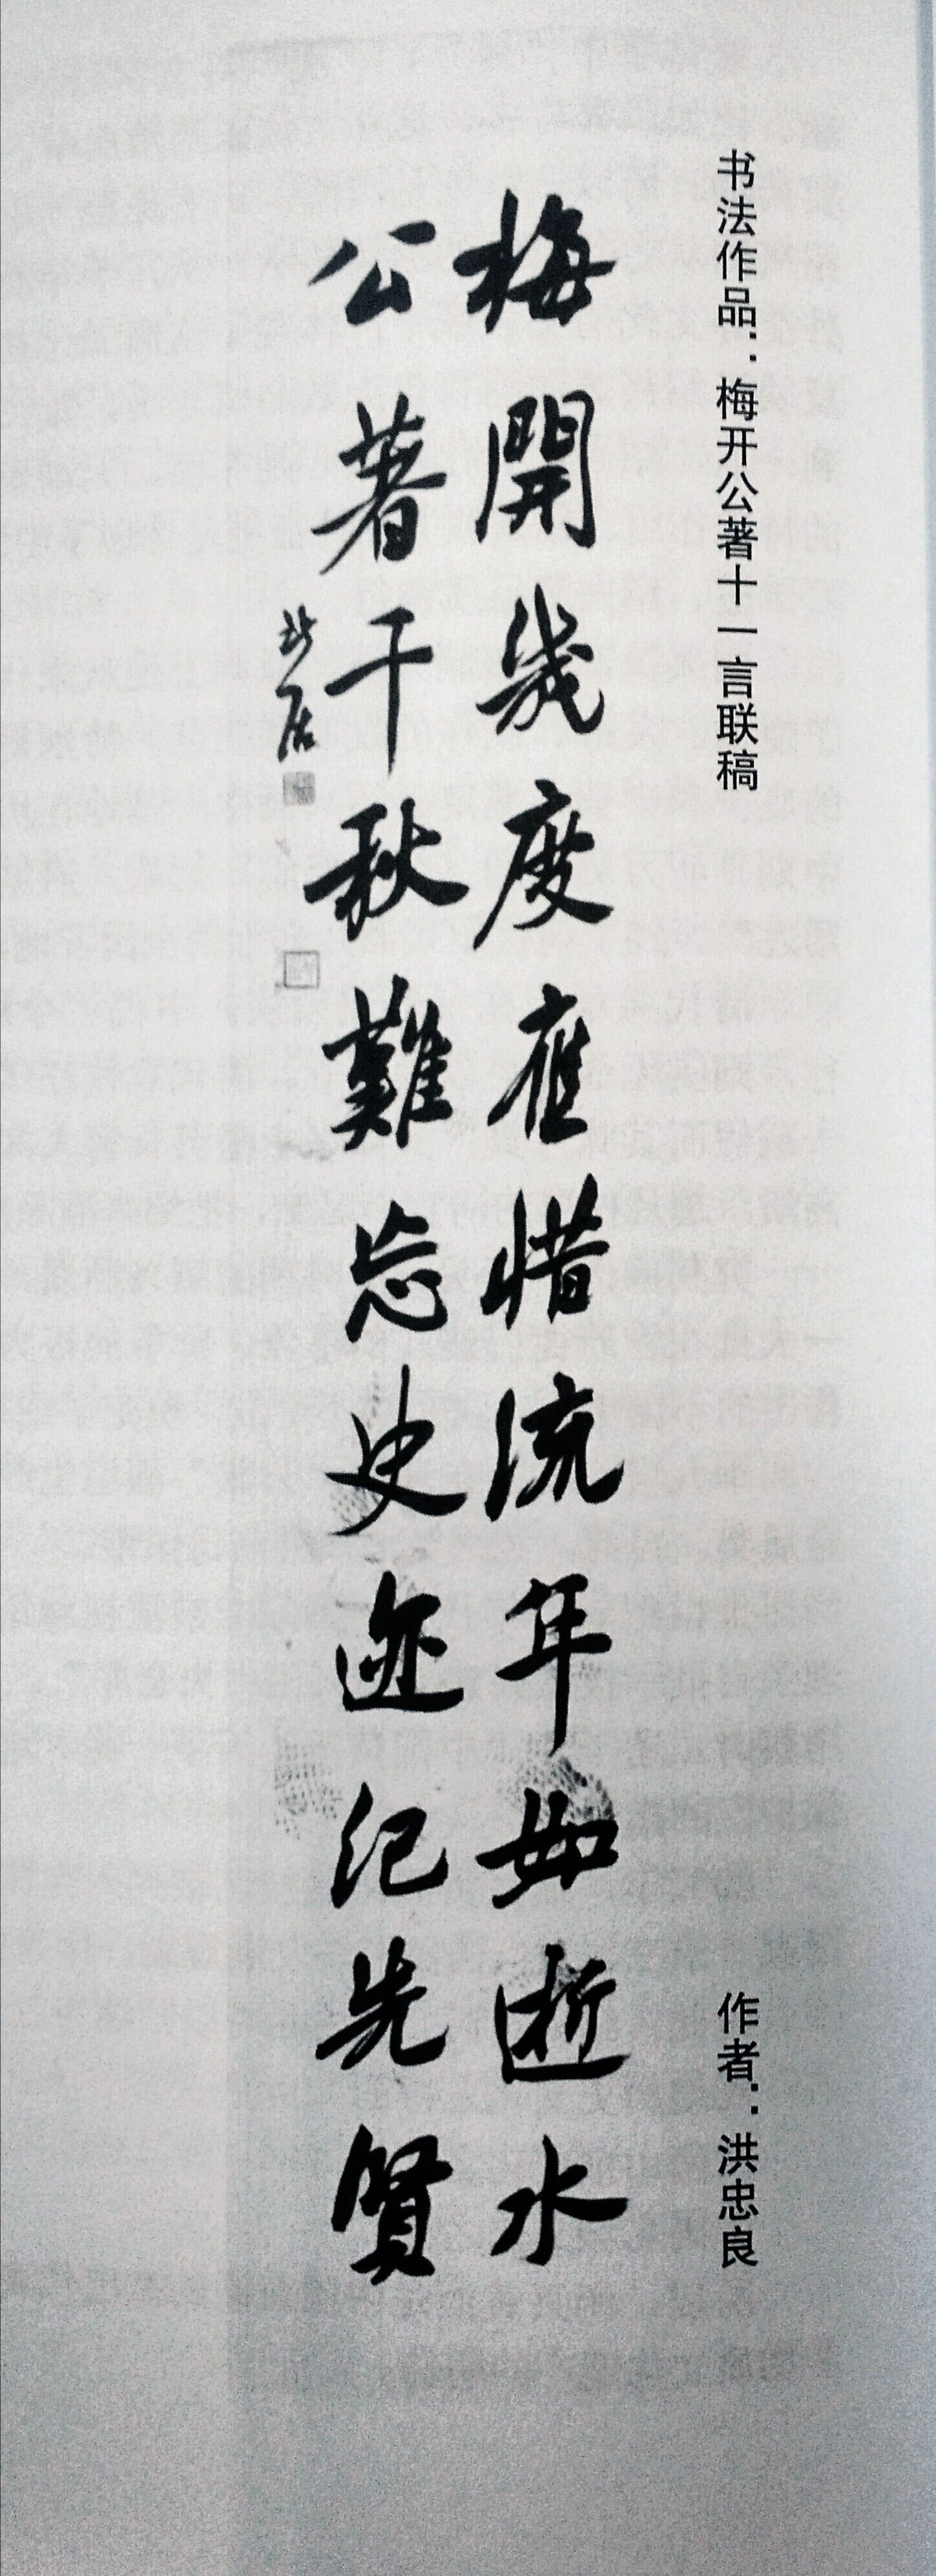 书法作品：梅开公著十一言联稿 作者：洪忠良
梅開幾度應惜流年如逝水
公著千秋難忘史迹纪先賢